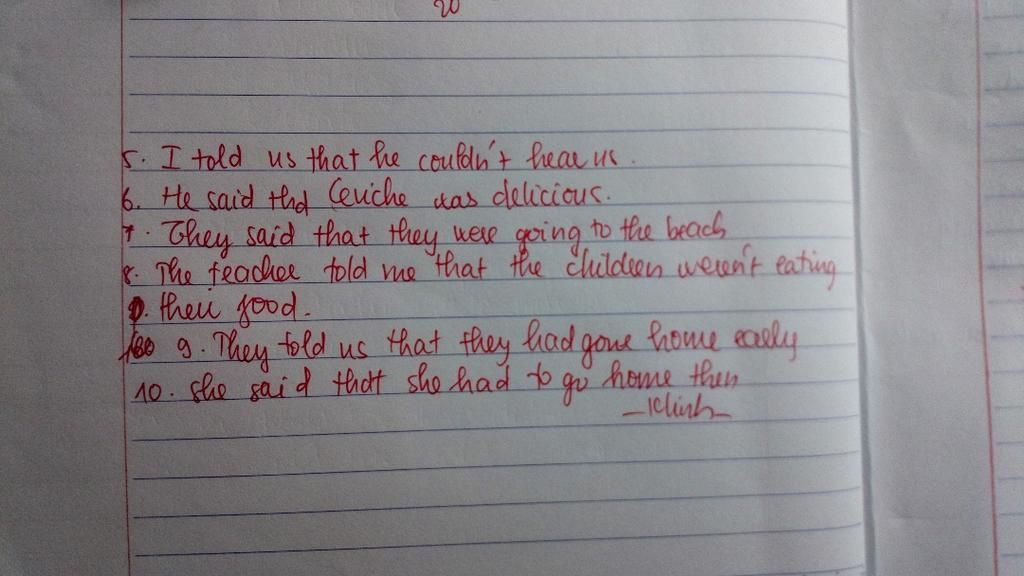 20
5. I told us that he couldn't hear us.
6. He said thd Ceviche was delicious.
7. They said that they were going to the beach
8. The teacher told me that the children weren't eating
their food.
9. They told us that they had gone home early
10. she said that she had to go home then